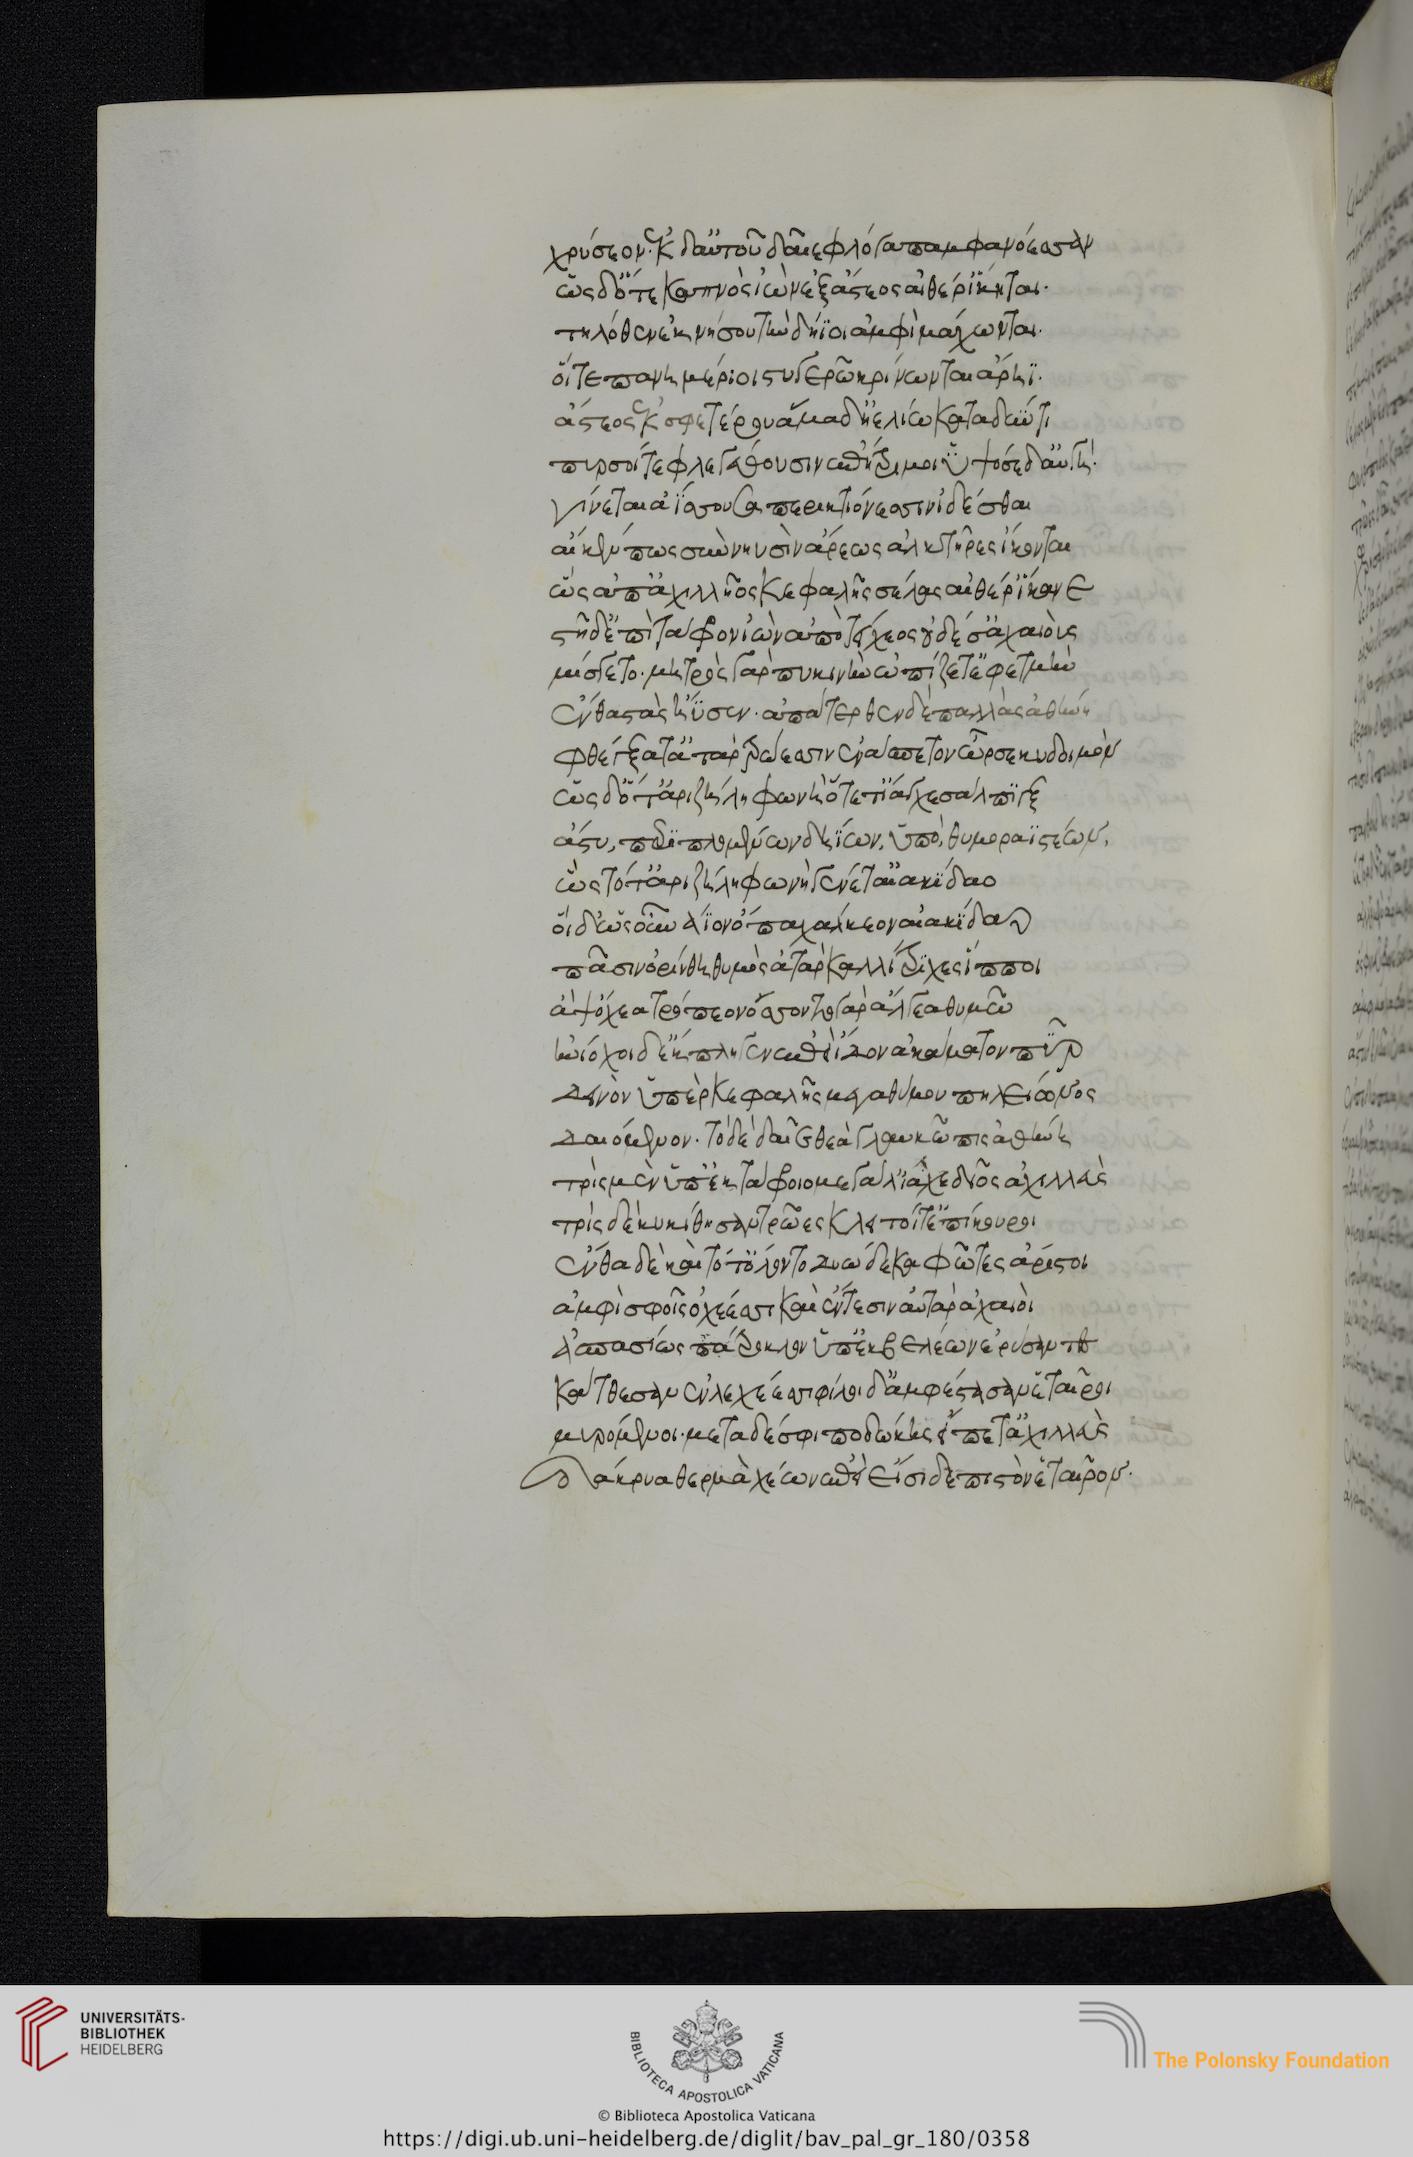 χρύσεον· ἐκ δ' αὐτοῦ δαῖε φλόγα παμφανόωσαν
ὡς δ' ὅτε καπνὸς ἰὼν ἐξ ἄστεος αἰθέρ' ἵκηται·
τηλόθεν ἐκ νήσου τὴν δήϊοι ἀμφὶ μάχωνται·
οἵ τε πανημέριοι στυγερῶ κρίνωνται ἄρηϊ·
ἄστεος ἐκ σφετέρου ἅμα δ' ἠελίω καταδύντι
πυρσοί τε φλεγέθουσιν ἐπήτριμοι ὑψόσε δ' αὐγὴ·
γίνεται ἀΐσσουσα περικτιόνεσσιν ἰδέσθαι
αἴ κέν πως σὺν νηυσὶν ἄρεως ἀλκτῆρες ἵκωνται
ὡς ἀπ' ἀχιλλῆος κεφαλῆς σέλας αἰθέρ' ἵκανε
στῆ δ' ἐπὶ τάφρον ἰὼν ἀπὸ τείχεος οὐδ' ἐς ἀχαιοὺς
μίσγετο· μητρὸς γὰρ πυκινὴν ὠπίζετ' ἐφετμὴν
ἔνθα στὰς ἤϋσεν· ἀπάτερθεν δὲ παλλὰς ἀθήνη
φθέγξατ' ἀτὰρ τρώεσσιν ἐν ἄσπετον ὦρσε κυδοιμόν
ὡς δ' ὅτ' ἀριζήλη φωνὴ ὅτε τ' ἴαχε σάλπιγξ
ἄστυ, περιπλομένων δηΐων, ὑπὸ, θυμοραϊστέων,
ὣς τότ' ἀριζήλη φωνὴ γένετ' αἰακίδαο
οἱ δ' ὡς οὖν ἄϊον ὄπα χάλκεον αἰακίδαο
πᾶσιν ὀρίνθη θυμὸς ἀτὰρ καλλίτριχες ἵπποι
ἂψ ὄχεα τρόπεον ὄσσοντο γὰρ ἄλγεα θυμῶ
ἡνίοχοι δ' ἔκπληγεν ἐπεὶ ἴδον ἀκάματον πῦρ
δεινὸν ὑπὲρ κεφαλῆς μεγαθύμου πηλείωνος
δαιόμενον· τὸ δὲ δαῖε θεὰ γλαυκῶπις ἀθήνη
τρὶς μὲν ὑπὲκ τάφροιο μεγάλ' ἴαχε δῖος ἀχιλλεὺς
τρὶς δὲ κυκήθησαν τρῶες κλειτοί τ' ἐπίκουροι
ἔνθα δὲ καὶ τότ' ὄλοντο δυώδεκα φῶτες ἄριστοι
ἀμφὶ σφοῖς ὀχέεσσι καὶ ἔντεσιν αὐτὰρ ἀχαιοὶ
ἀσπασίως πάτροκλον ὑπὲκ βελέων ἐρύσαντες
κάτθεσαν ἐν λεχέεσσι φίλοι δ' ἀμφέστασαν ἑταῖροι
μυρόμενοι· μετὰ δέ σφι ποδώκης εἵπετ' ἀχιλλεὺς
δάκρυα θερμὰ χέων ἐπεὶ εἴσιδε πιστὸν ἑταῖρον·
UNIVERSITÄTS-
BIBLIOTHEK
HEIDELBERG
BIBLIOTECA APOSTOLICA VATICANA
The Polonsky Foundation
© Biblioteca Apostolica Vaticana
https://digi.ub.uni-heidelberg.de/diglit/bav_pal_gr_180/0358